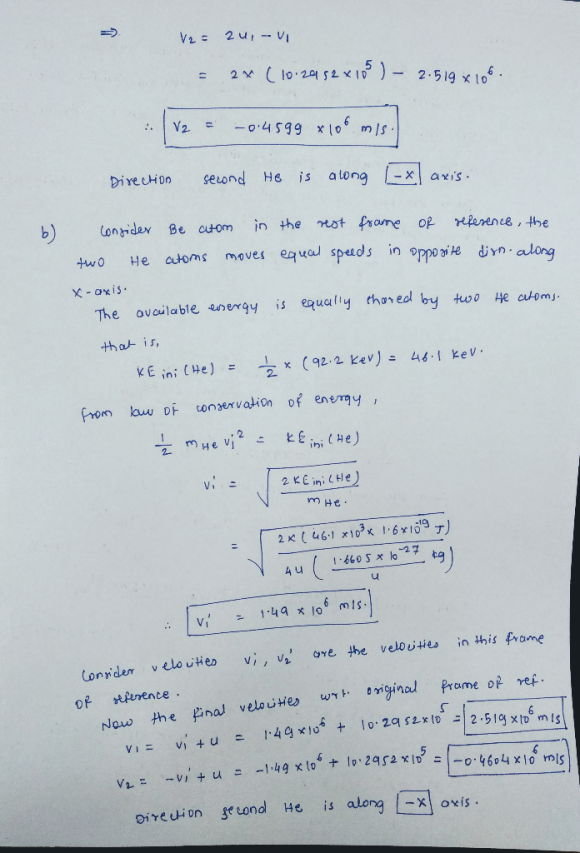 ⇒ V2 = 2u1 - V1
= 2 × (10.2952 × 10^5) - 2.519 × 10^6.
∴ V2 = -0.4599 × 10^6 m/s.
Direction second He is along -x axis.
b) Consider Be atom in the rest frame of reference, the
two He atoms moves equal speeds in opposite dirn. along
x-axis.
The available energy is equally shared by two He atoms.
that is,
KE ini (He) = 1/2 × (92.2 KeV) = 46.1 KeV.
from law of conservation of energy,
1/2 mHe v1'^2 = KE ini (He)
v1' = √(2KE ini (He) / mHe.)
= √(2×(46.1 × 10^3 × 1.6×10^-19 J) / 4u (1.6605 × 10^-27 kg / u))
∴ v1' = 1.49 × 10^6 m/s.
Consider velocities v1', v2' are the velocities in this frame
of reference.
Now the final velocities wrt original frame of ref.
V1 = v1' + u = 1.49×10^6 + 10.2952×10^5 = 2.519 ×10^6 m/s
V2 = -v1' + u = -1.49 × 10^6 + 10.2952 × 10^5 = -0.4604 × 10^6 m/s
Direction second He is along -x axis.